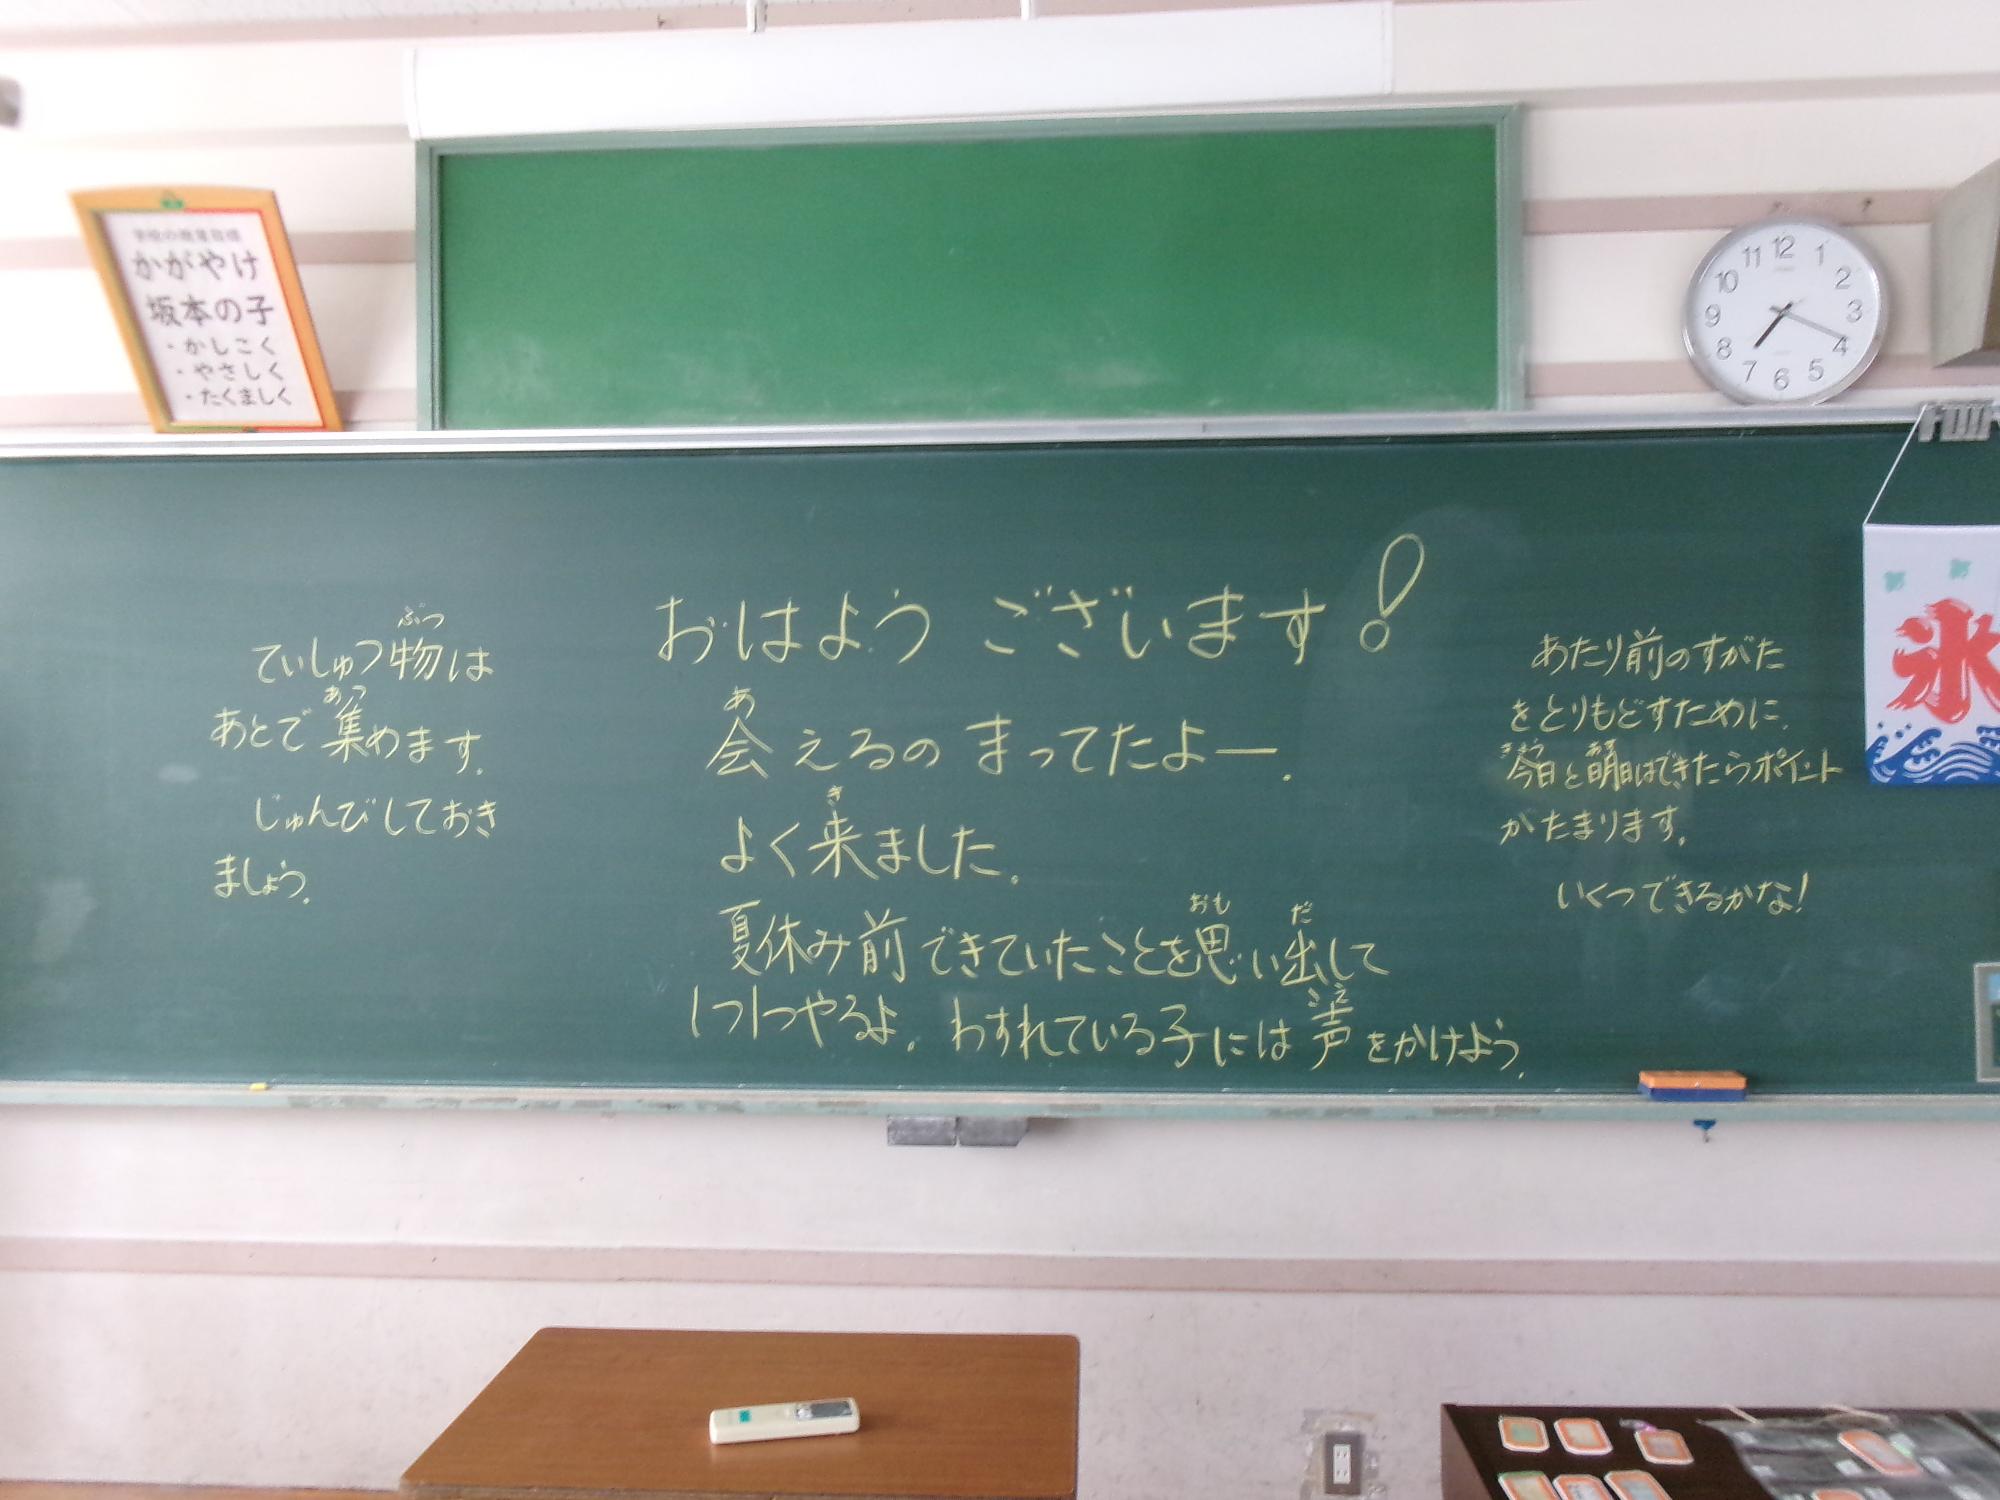 学校の教育目標
かがやけ
坂本の子
・かしこく
・やさしく
・たくましく
11 12 1
10 2
9 3
8 4
7 6 5
ていしゅつ物は
ぶつ
あとで集めます。
あつ
じゅんびしておき
ましょう。
おはようございます!
あ
会えるのまってたよー。
き
よく来ました。
おも だ
夏休み前できていたことを思い出して
こえ
1つ1つやるよ。わすれている子には声をかけよう。
あたり前のすがた
をとりもどすために、
きょう あす
今日と明日はできたらポイント
がたまります。
いくつできるかな!
氷